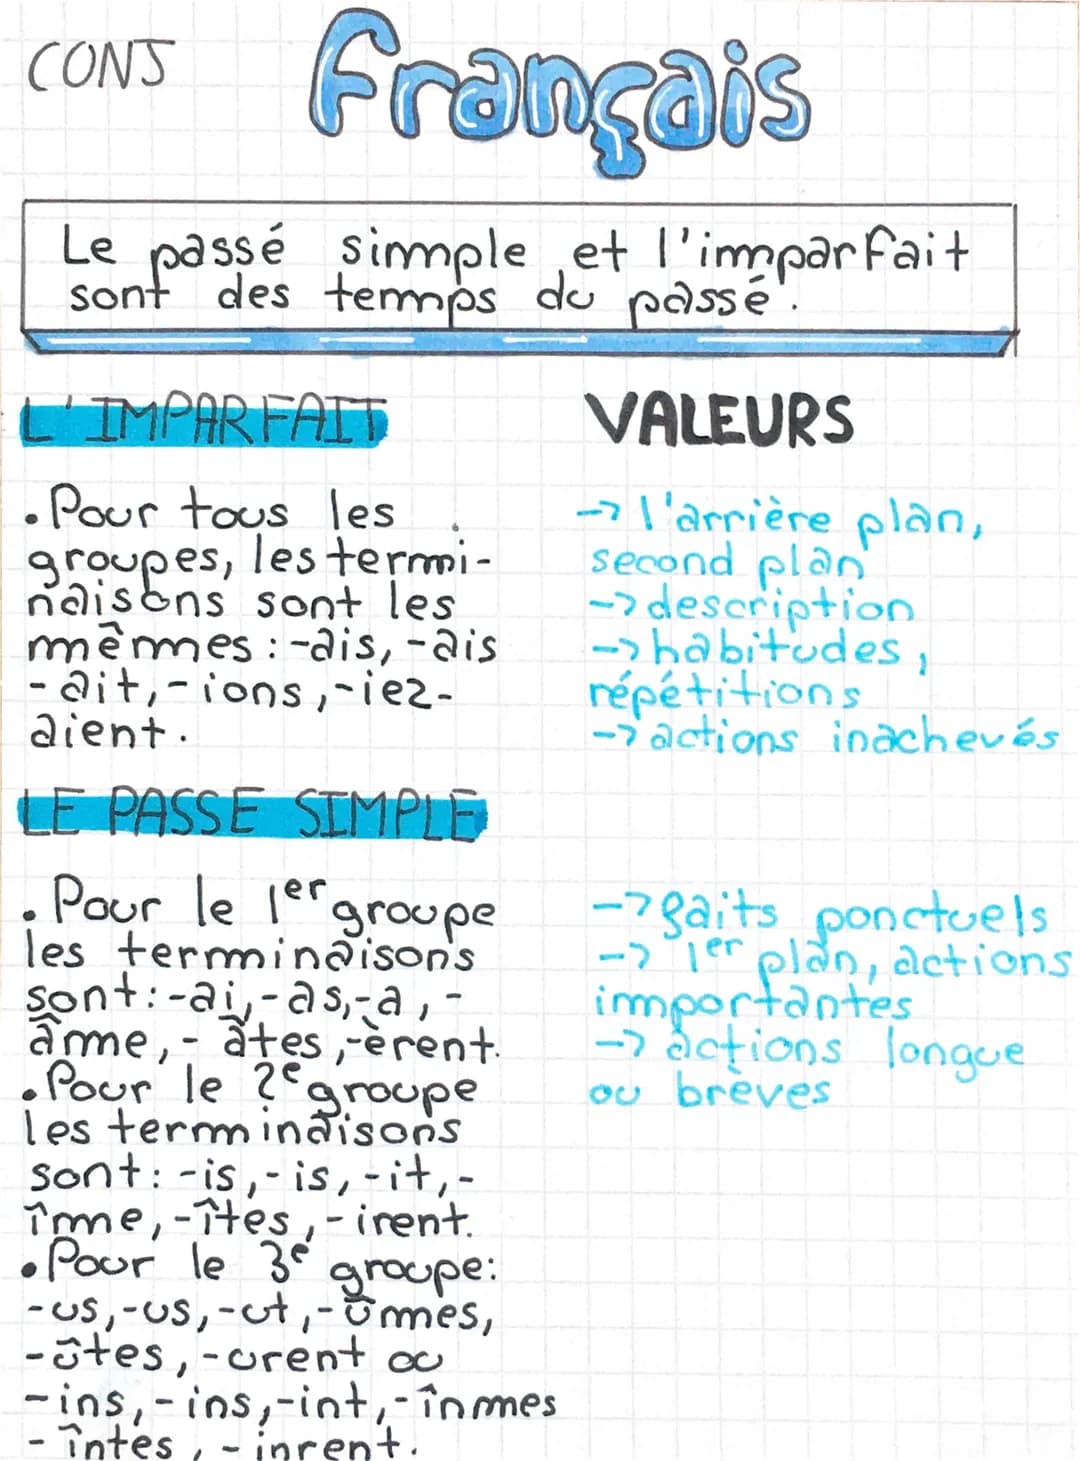 CONJ
Français
Le passé simple et l'imparfait
sont des temps du passé.
L'IMPARFAIT
VALEURS
• Pour tous les
groupes, les termi-
naisons sont les
mêmes : -ais, -ais
-ait, -ions, -iez-
aient.
→ l'arrière plan,
second plan
→ description
→ habitudes,
répétitions
→ actions inachevés
LE PASSE SIMPLE
• Pour le 1er groupe
les terminaisons
sont: -ai, -as, -a, -
âme, - âtes, -èrent.
• Pour le 2e groupe
les terminaisons
sont: -is, -is, -it, -
îme, -îtes, -irent.
• Pour le 3e groupe:
-us, -us, -ut, -ûmes,
-ûtes, -urent ou
-ins, -ins, -int, -înmes
- întes, - inrent.
→ faits ponctuels
→ 1er plan, actions
importantes
→ actions longue
ou brèves